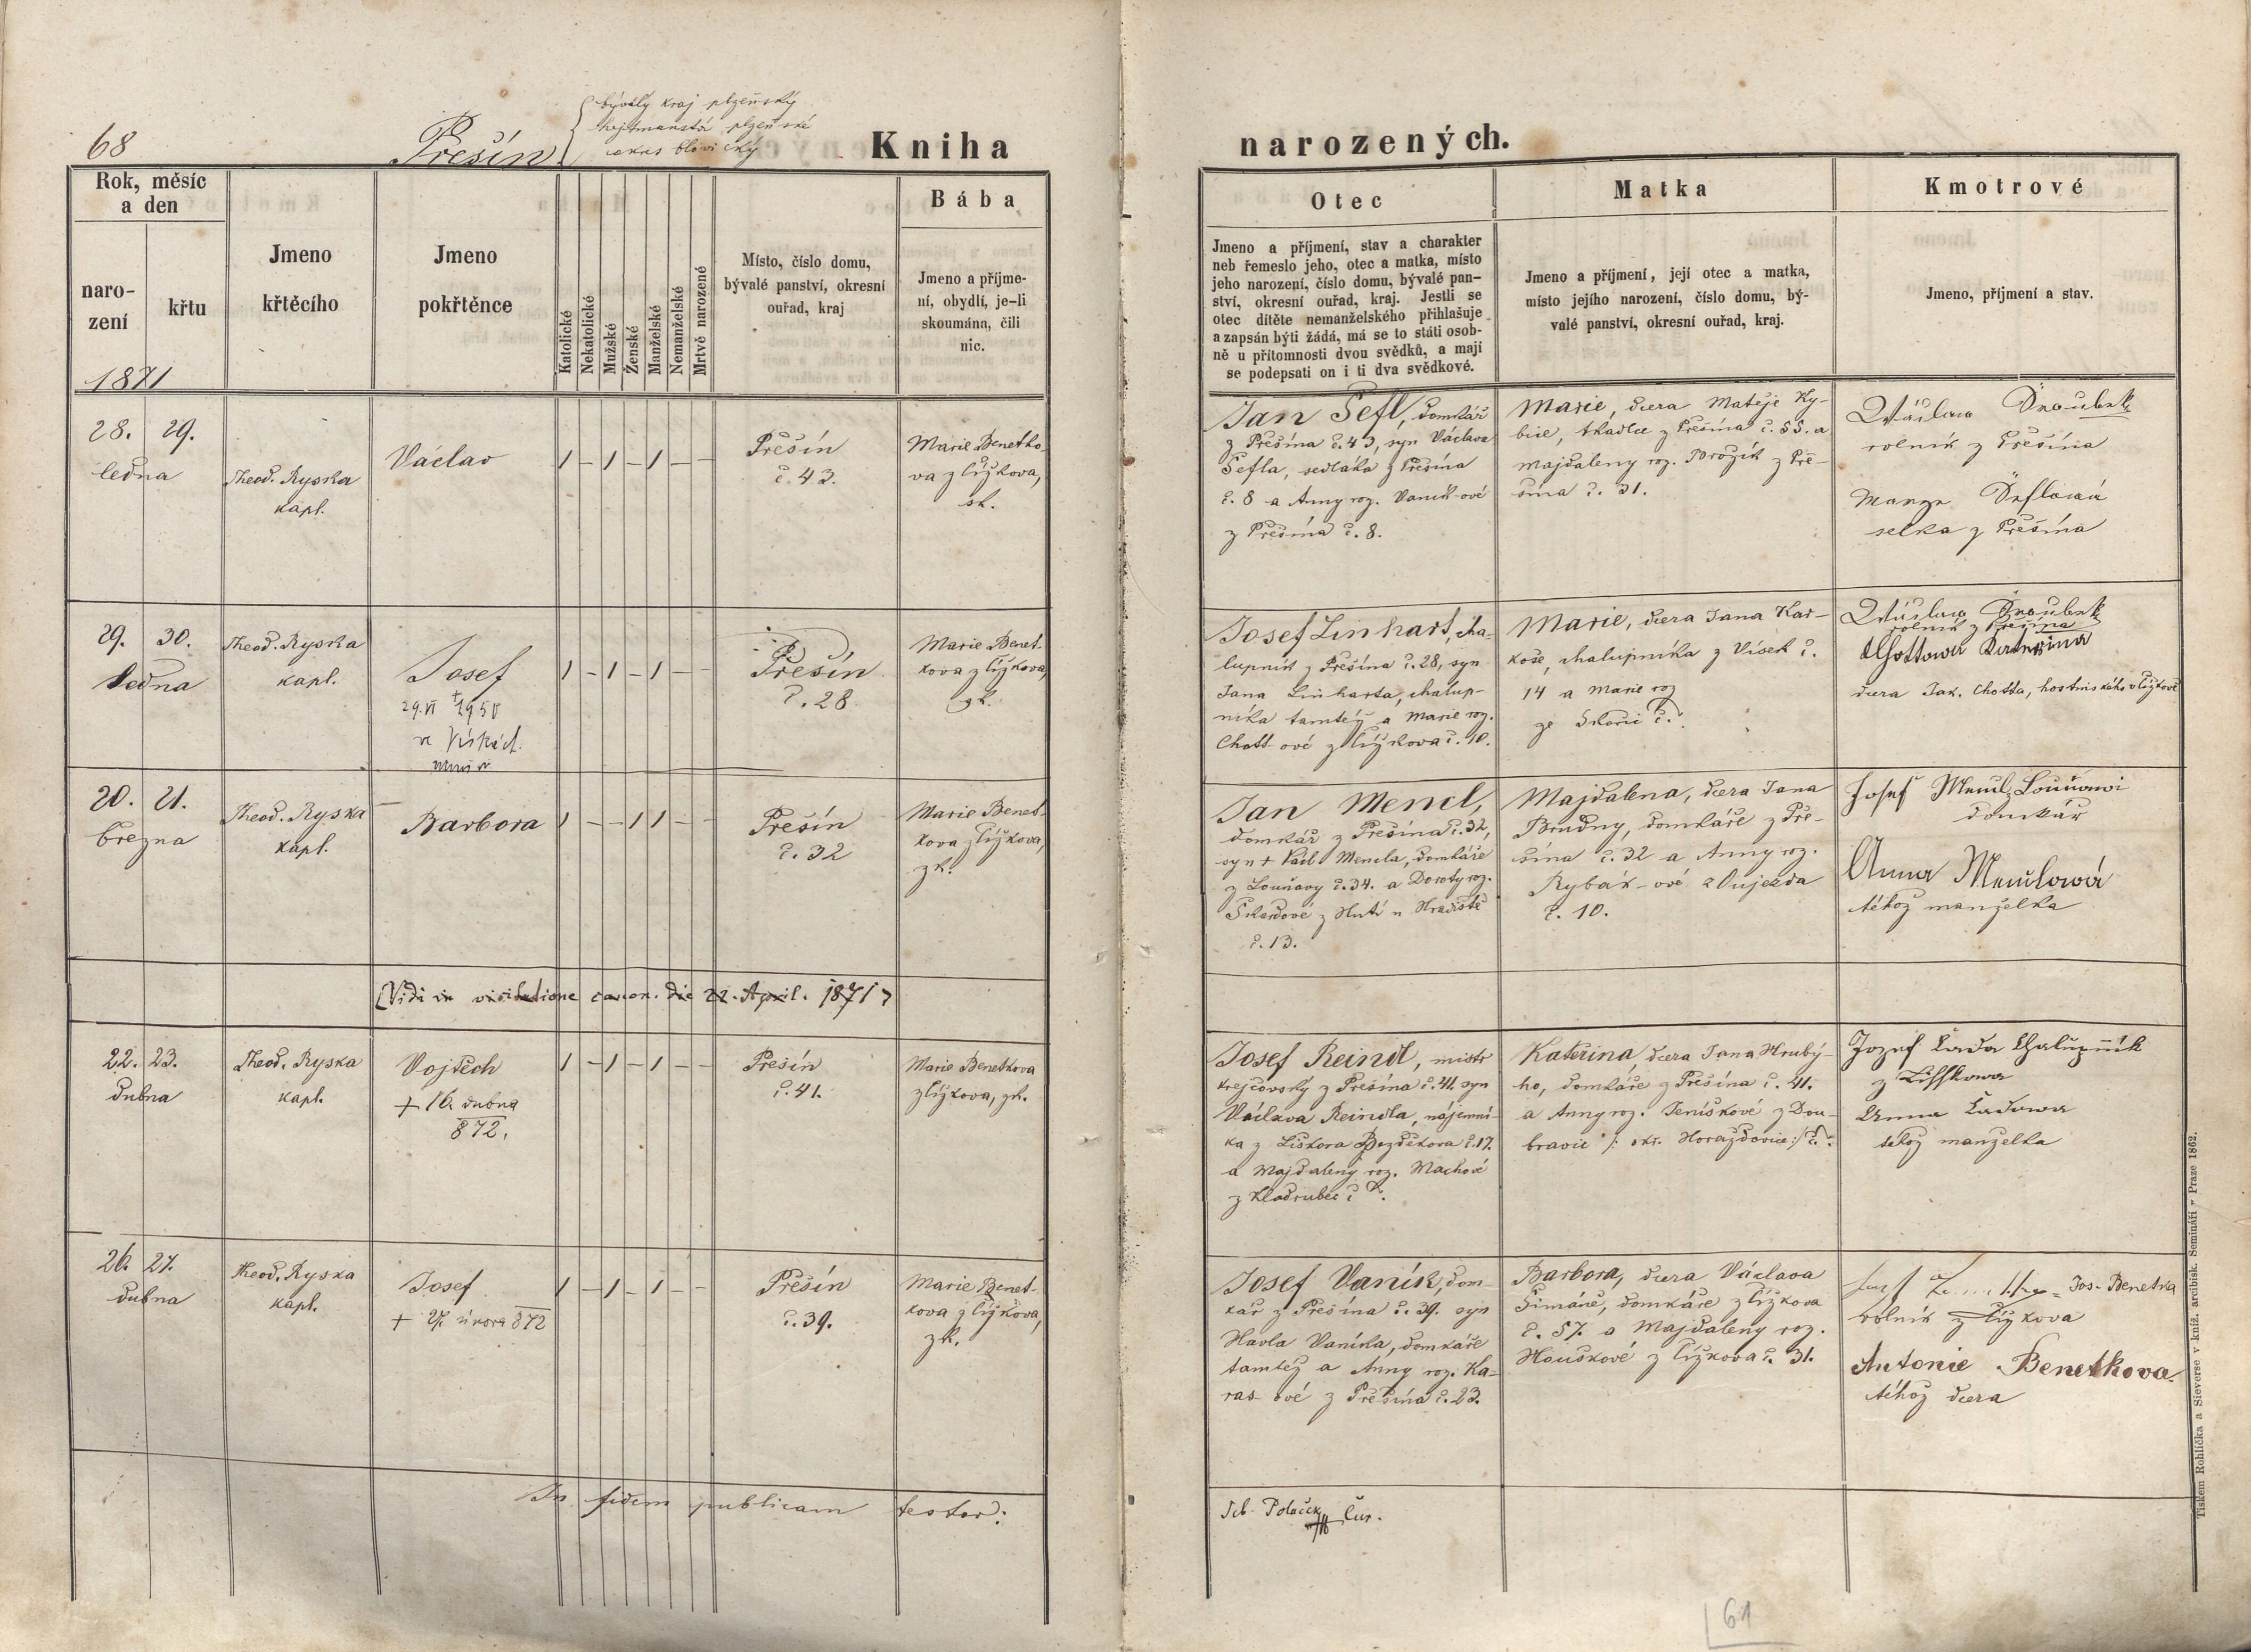 68
Přešín
bývalý kraj plzeňský
hejtmanství plzeňské
okres blovický
Kniha
narozených.
Rok, měsíc
a den
naro-
zení
křtu
1871
Jmeno
křtěcího
Jmeno
pokřtěnce
Katolické
Nekatolické
Mužské
Ženské
Manželské
Nemanželské
Mrtvě narozené
Místo, číslo domu,
bývalé panství, okresní
ouřad, kraj
Bába
Jmeno a příjme-
ní, obydlí, je-li
skoumána, čili
nic.
Otec
Jmeno a příjmení, stav a charakter
neb řemeslo jeho, otec a matka, místo
jeho narození, číslo domu, bývalé pan-
ství, okresní ouřad, kraj. Jestli se
otec dítěte nemanželského přihlašuje
a zapsán býti žádá, má se to státi osob-
ně u přítomnosti dvou svědků, a mají
se podepsati on i ti dva svědkové.
Matka
Jmeno a příjmení, její otec a matka,
místo jejího narození, číslo domu, bý-
valé panství, okresní ouřad, kraj.
Kmotrové
Jmeno, příjmení a stav.
28. 29.
ledna
Theod. Ryska
kapl.
Václav
1 – 1 – 1 – –
Přešín
č. 43.
Marie Benetko
va z Čížkova,
zk.
Jan Šefl, domkář
z Přešína č. 43, syn Václava
Šefla, sedláka z Přešína
č. 8 a Anny roz. Vaník-ové
z Přešína č. 8.
Marie, dcera Matěje Ky-
bice, tkadlce z Přešína č. 55. a
Majdaleny roz. Brožík z Pře-
šína č. 31.
Wáclaw Draubek
rolník z Přešína
Šeflová
selka z Přešína
29. 30.
ledna
Theod. Ryska
kapl.
Josef
29. VI + 1950
ve Vískách
1 – 1 – 1 – –
Přešín
č. 28
Marie Benet-
kova z Čížkova,
zk.
Josef Linhart, cha-
lupník z Přešína č. 28, syn
Jana Linharta, chalup-
níka tamtéž a Marie roz.
Chott-ové z Čížkova č. 10.
Marie, dcera Jana Kar-
koše, chalupníka z Vísek č.
14 a Marie roz
ze Skořic č.
Wáclaw Draubek
rolník z Přešína
Chottowa Kateřina
dcera Jak. Chotta, hostinského v Čížkově
20. 21.
března
Theod. Ryska
kapl.
Barbora
1 – – 1 1 – –
Přešín
č. 32
Marie Benet-
kova z Čížkova,
zk.
Jan Mencl,
domkář z Přešína č. 32,
syn + Václ. Mencla, domkáře
z Louňavy č. 34. a Doroty roz.
z Hutí u Hradiště
č. 13.
Majdalena, dcera Jana
Brudny, domkáře z Pře-
šína č. 32 a Anny roz.
Rybák-ové z Oujezda
č. 10.
Josef Mencl z Louňowi
domkář
Anna Menclowá
téhož manželka
Vidi in visitatione canon. die 22. April. 1871
22. 23.
dubna
Theod. Ryska
kapl.
Vojtěch
+ 16. dubna
872.
1 – 1 – 1 – –
Přešín
č. 41.
Marie Benetkova
z Čížkova, zk.
Josef Reindl, mistr
krejčovský z Přešína č. 41. syn
Václava Reindla, nájemní-
ka z Liškova Bezděkova č. 17.
a Majdaleny roz. Machové
z Kladrubec č.
Kateřina, dcera Jana Hrubý-
ho, domkáře z Přešína č. 41.
a Anny roz. Jeníškové z Dou-
bravic /: okr. Horažďovice :/ č.
Jozef Lada Chalupník
z Cisskowa
Anna Ladowa
tehož manželka
26. 27.
dubna
Theod. Ryska
kapl.
Josef
+ 27. února 872
1 – 1 – 1 – –
Přešín
č. 39.
Marie Benet-
kova z Čížkova,
zk.
Josef Vaník, dom-
kář z Přešína č. 39. syn
Havla Vaníka, domkáře
tamtéž a Anny roz. Ka-
ras-ové z Přešína č. 23.
Barbora, dcera Václava
Šimáně, domkáře z Čížkova
č. 57. a Majdaleny roz.
Houškové z Čížkova č. 31.
Jos. Benetka
rolník z Čížkova
Antonie Benetkova
téhož dcera
In fidem publicam testor:
Polaček Cur.
61
Tiskem Rohlíčka a Sieverse v kníž. arcibisk. Semináři v Praze 1862.